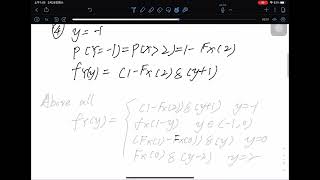 ④ y=-1
P(Y=-1)=P(X>2)=1-Fx(2)
fY(y)= (1-Fx(2))δ(y+1)
Above all
fY(y)= { (1-Fx(2))δ(y+1) y=-1
fx(1-y) y∈(-1,0)
(Fx(1)-Fx(0))δ(y) y=0
Fx(0)δ(y-2) y=2